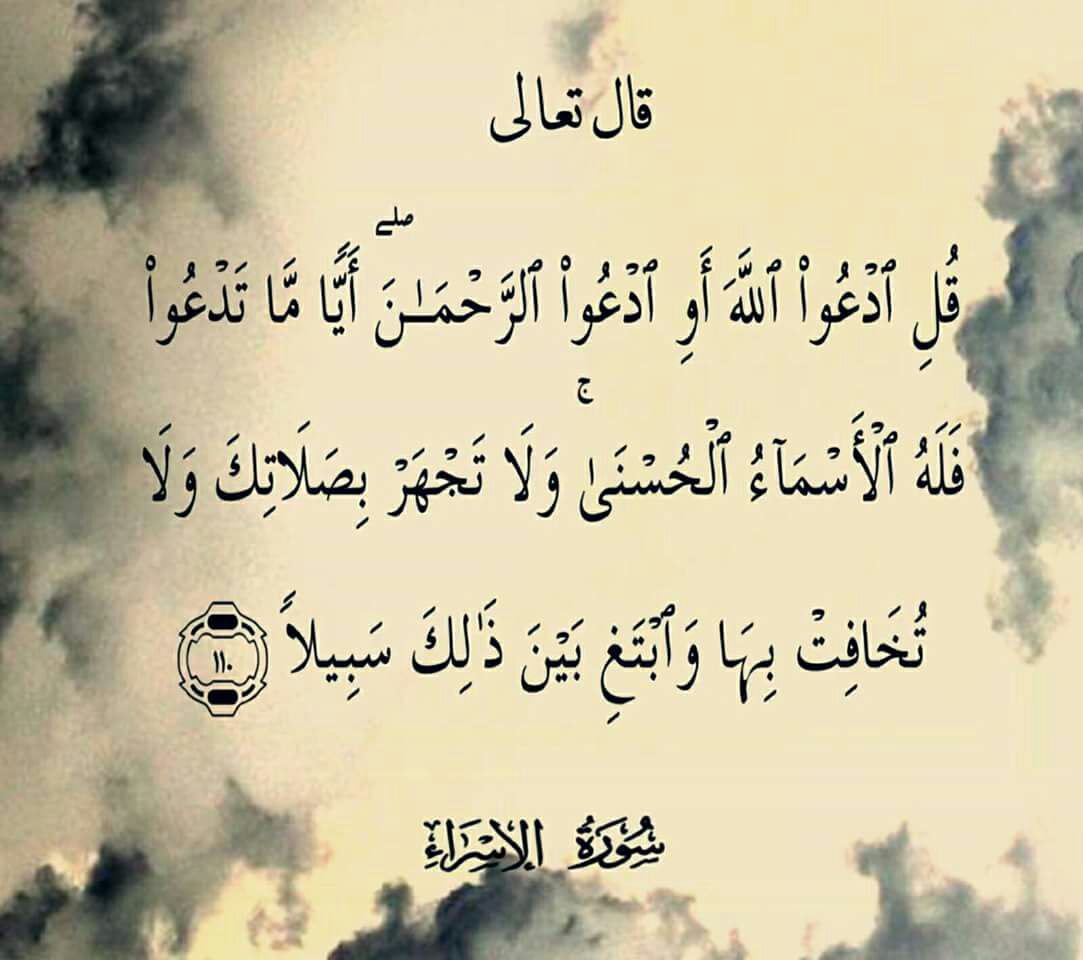 قال تعالى
قُلِ ٱدْعُوا۟ ٱللَّهَ أَوِ ٱدْعُوا۟ ٱلرَّحْمَـٰنَ ۖ أَيًّا مَّا تَدْعُوا۟
فَلَهُ ٱلْأَسْمَآءُ ٱلْحُسْنَىٰ ۚ وَلَا تَجْهَرْ بِصَلَاتِكَ وَلَا
تُخَافِتْ بِهَا وَٱبْتَغِ بَيْنَ ذَٰلِكَ سَبِيلاً ١١٠
سُورَةُ الإِسْرَاءِ